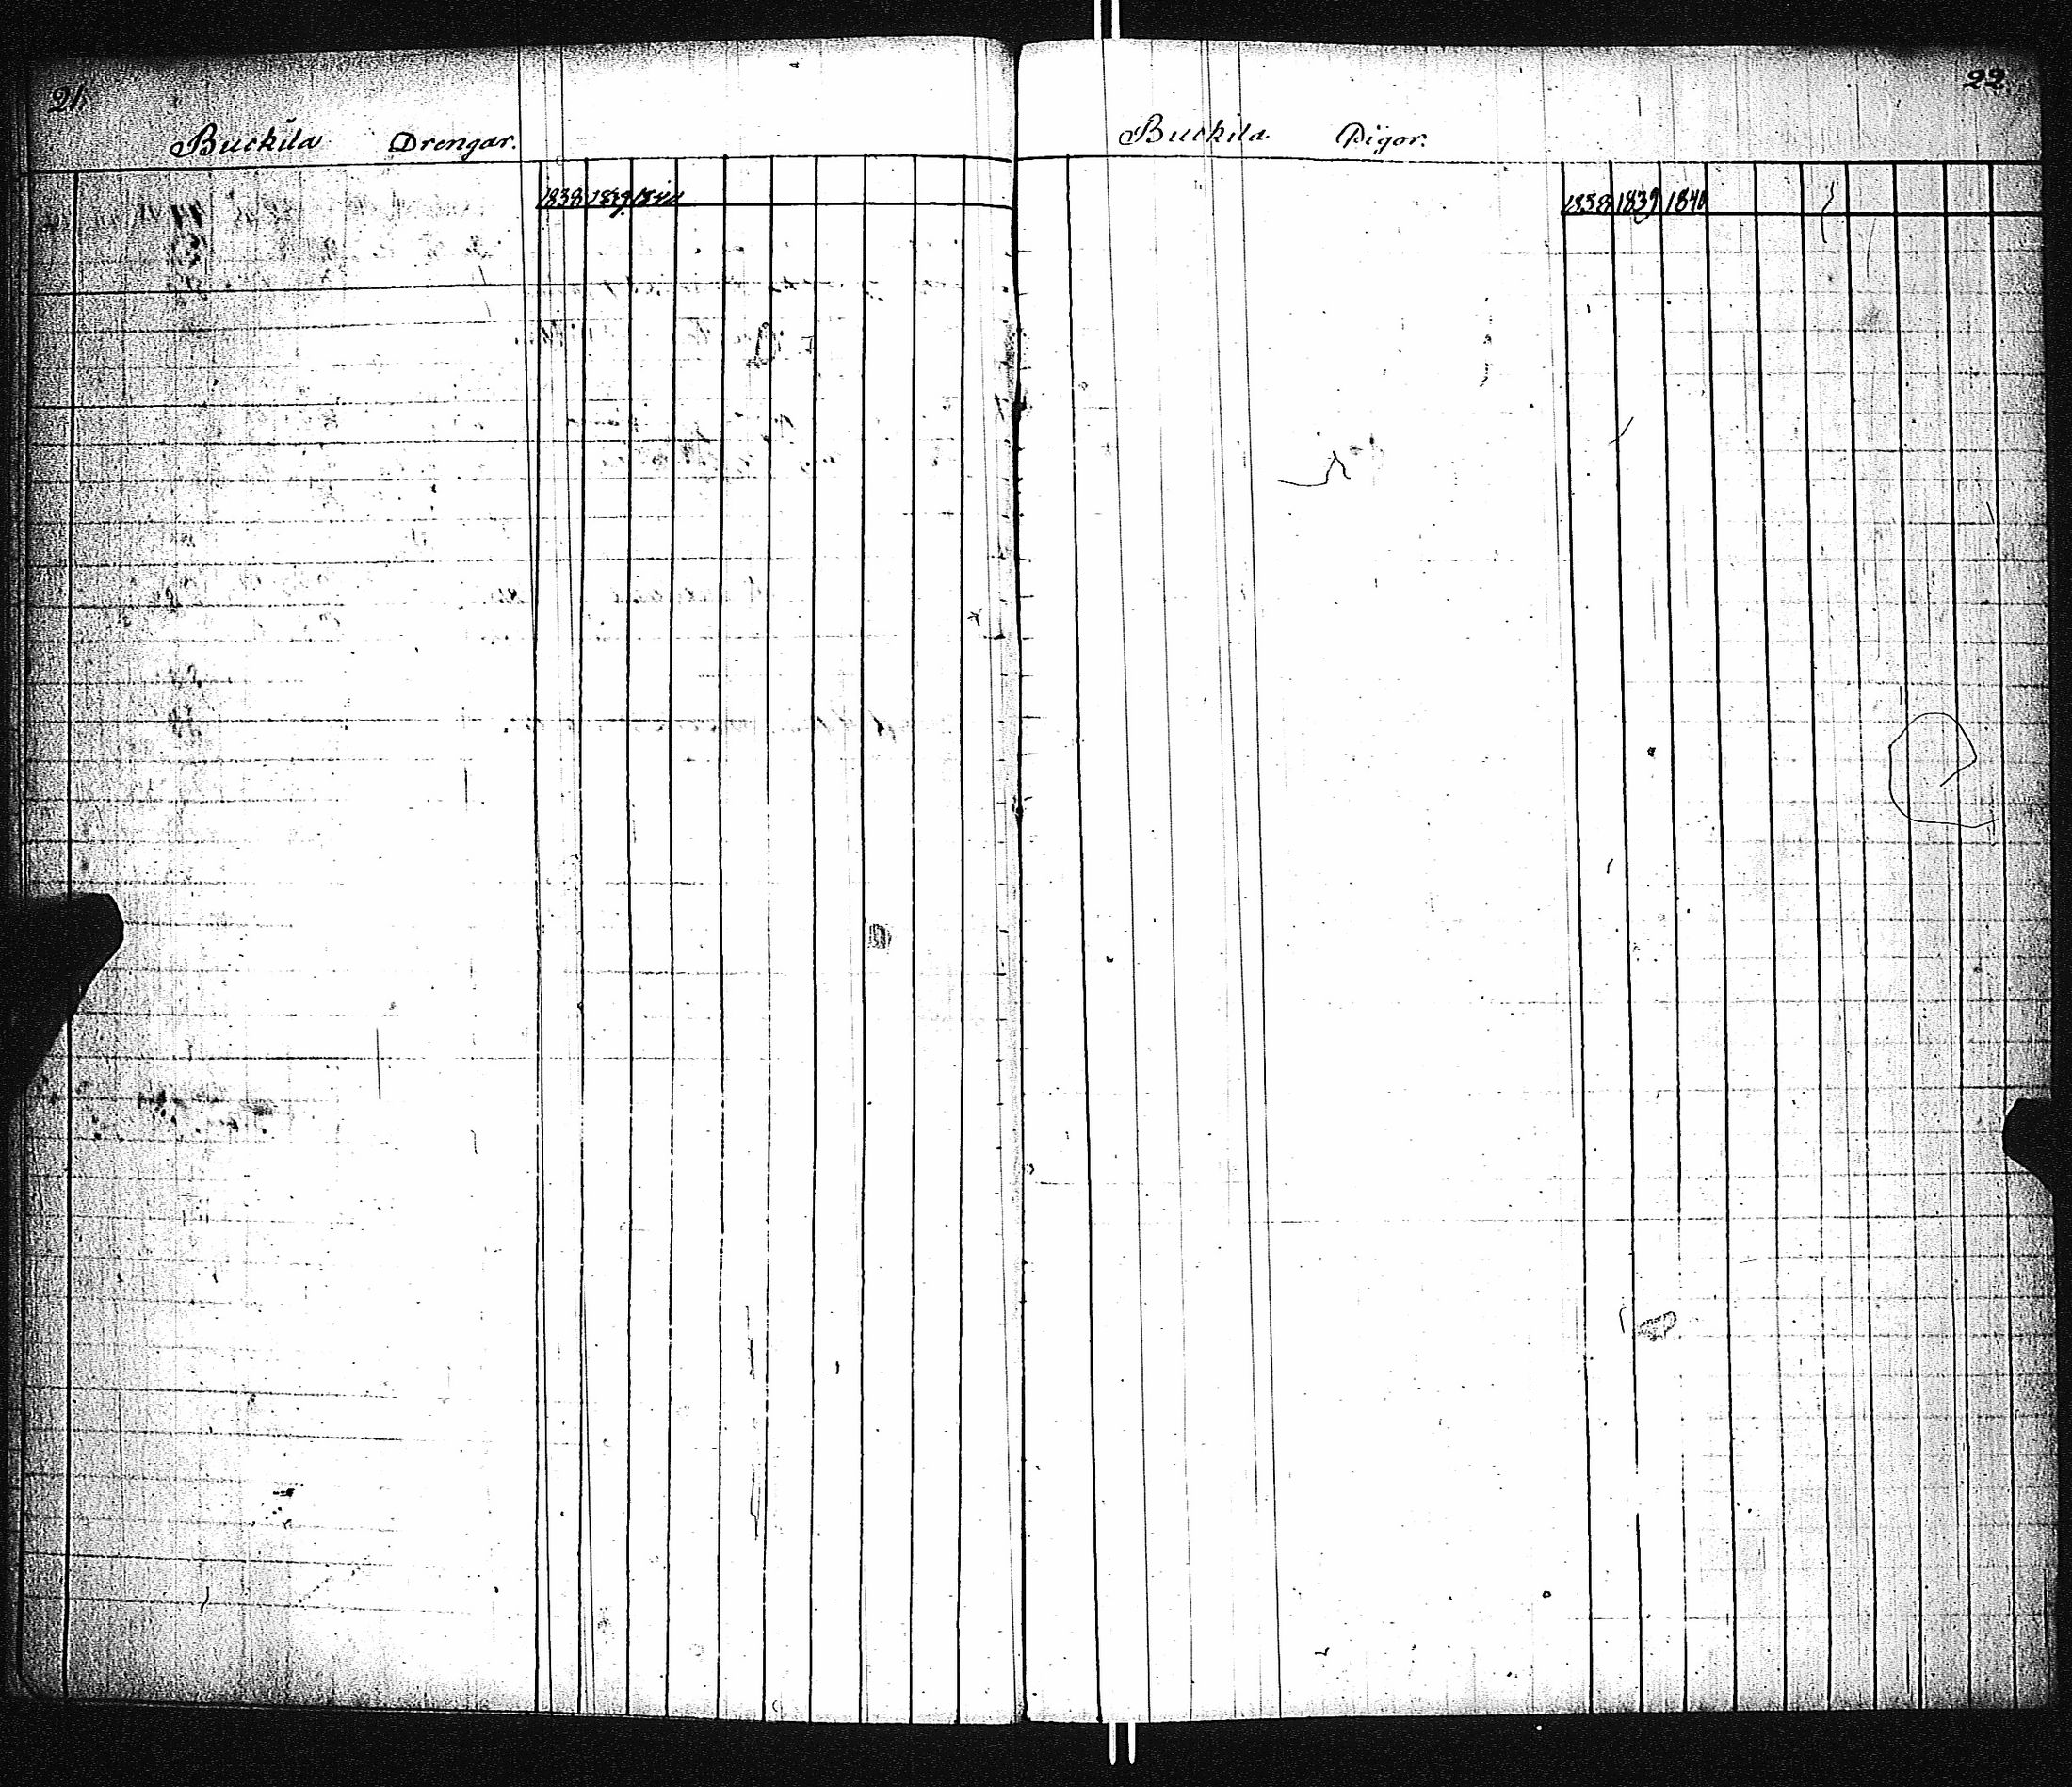 21.
Buckila Drengar.
1838 1839 1840
22.
Buckila Pigor.
1838 1839 1840